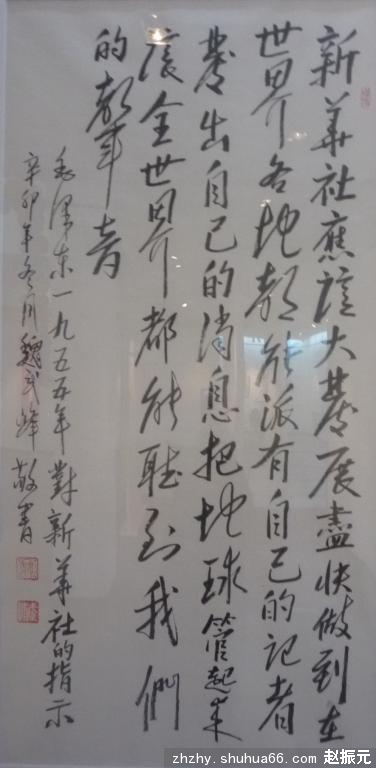 新華社應該大發展盡快做到在
世界各地都能派有自己的记者
發出自己的消息把地球管起来
讓全世界都能聽到我們
的聲音
毛澤东一九五五年對新華社的指示
辛卯年冬月魏武峰敬書
zhzhy.shuhua66.com 赵振元